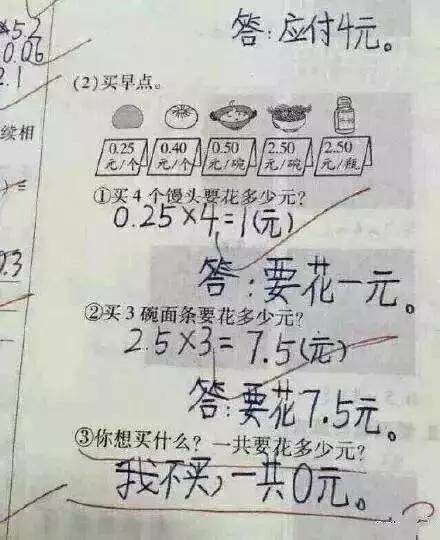 ×5.2
0.06
2.1
答:应付4元。
(2)买早点。
续相
0.25元/个 0.40元/个 0.50元/碗 2.50元/碗 2.50元/瓶
①买4个馒头要花多少元?
0.25×4=1(元)
0.3
答:要花一元。
②买3碗面条要花多少元?
2.5×3=7.5(元)
答:要花7.5元。
③你想买什么?一共要花多少元?
我不买,一共0元。
?